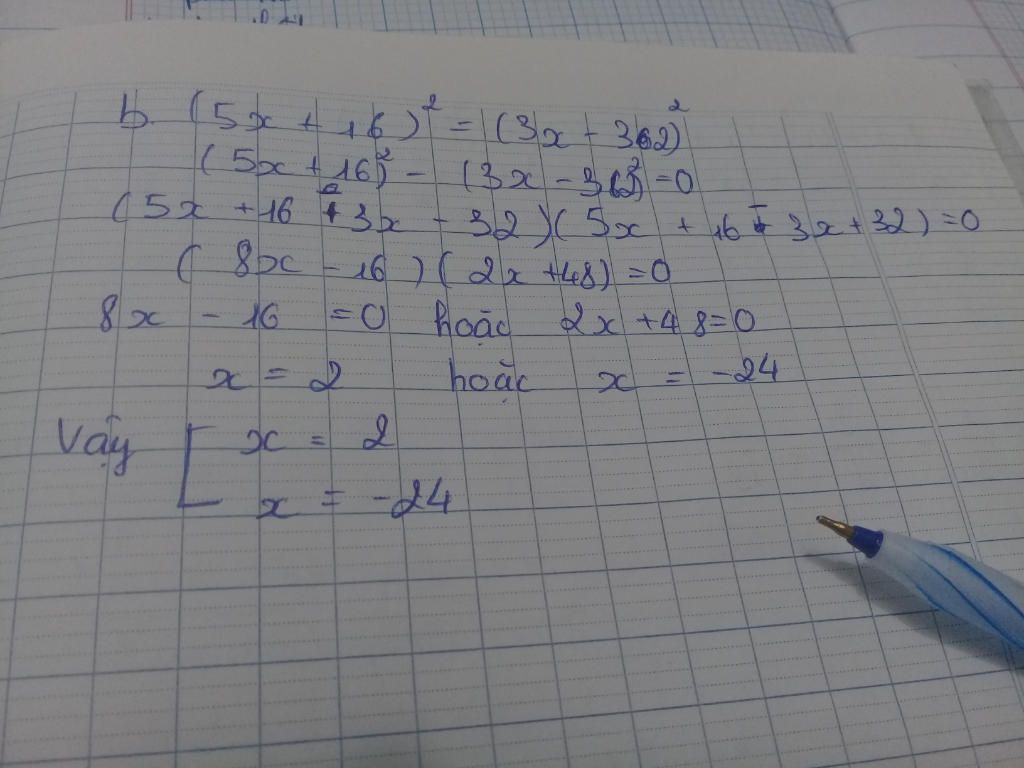 b (5x + 16)² = (3x - 32)²
(5x + 16)² - (3x - 32)² = 0
(5x + 16 + 3x - 32)(5x + 16 - 3x + 32) = 0
(8x - 16)(2x + 48) = 0
8x - 16 = 0 hoặc 2x + 48 = 0
x = 2 hoặc x = -24
Vậy [ x = 2
x = -24